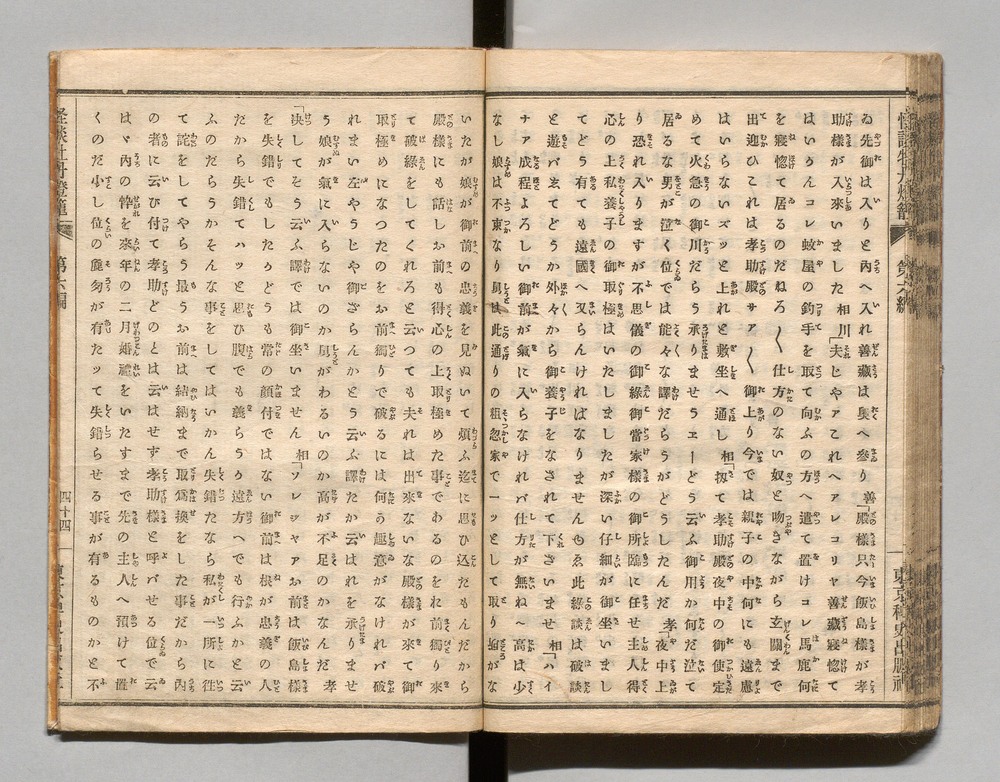 怪談牡丹燈籠 第六編
東京稗史出版社
ゐ先御は入りと内へ入れ善藏は奥へ參り 善「殿樣只今飯島樣が孝
助樣が入來いました 相川「夫じやアこれへアレコリヤ善藏寢惚て
はいかんコレ蚊屋の釣手を取て向ふの方へ遣て置けコレ馬鹿何
を寢惚て居るのだねろ〳〵仕方のない奴と呟きながら玄關まで
出迎ひこれは孝助殿サア〳〵御上り今では親子の中何にも遠慮
はいらないズッと上れと敷坐へ通し 相「扨て孝助殿夜中の御使定
めて火急の御用だらう承りませうエーどう云ふ御用か何だ泣て
居るな男が泣く位では能々な譯だらうがどうしたんだ 孝「夜中上
り恐れ入りますが不思儀の御緣御當家樣の御所臨に任せ主人得
心の上私養子の御取極はいたしましたが深い仔細が御坐いまし
てどう有ても遠國へ參らんければなりませんもゑ此緣談は破談
と遊バゑてどうか外々から御養子をなされて下さいませ 相「ハイ
ナア成程よろしい御前が氣に入らなければ仕方が無ね〜高は少
なし娘は不束なり舅は此通りの粗忽家で一ッとして取り處がな
いたが娘が御前の忠義を見ぬいて煩ふ迄に思ひ込たもんだから
殿樣にも話しお前も得心の上取極めた事であるのをれ前獨り來
て破緣をしてくれろと云つても夫れは出來ないな殿樣が來て御
取極めになつたのをお前獨りで破るには何う趣意がなけれバ破
れまい左やうじや御ざらんかどう云ふ譯だか云はれを承りませ
う娘が氣に入らないのか舅がわるいのか高が不足なのかなんだ 孝
「決してそう云ふ譯では御坐いません 相「ソレジャアお前は飯島樣
を失錯でもしたかどうも常の顏付ではない御前は根が忠義の人
だから失錯てハッと思ひ腹でも切らうか遠方へでも行ふかと云
ふのだらうかそんな事をしてはいかん失錯たなら私が一所に往
て詫をしてやらう最うお前は結納まで取爲換をした事だから内
の者に云ひ付て孝助どのとは云はせず孝助樣と呼バせる位で云
はゞ內の悴を來年の二月婚禮をいたすまで先の主人へ預けて置
くのだ少し位の麁匆が有たッて失錯らせる事が有るものかと不
怪談牡丹燈籠 第六編
四十四